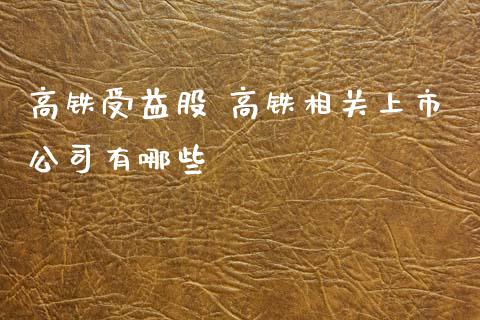 高铁受益股 高铁相关上市
公司有哪些